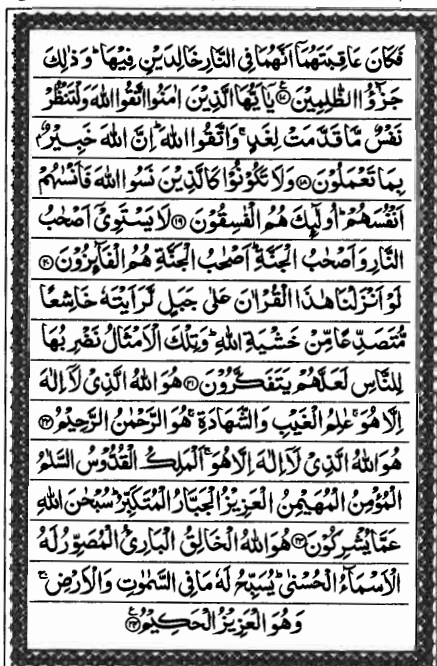 فَكَانَ عَاقِبَتَهُمَآ اَنَّهُمَا فِى النَّارِ خَالِدَيْنِ فِيْهَا ؕ وَذٰلِكَ
جَزٰٓؤُا الظّٰلِمِيْنَ ۝۱۷ يٰۤاَيُّهَا الَّذِيْنَ اٰمَنُوا اتَّقُوا اللّٰهَ وَلْتَنْظُرْ
نَفْسٌ مَّا قَدَّمَتْ لِغَدٍ ۚ وَاتَّقُوا اللّٰهَ ؕ اِنَّ اللّٰهَ خَبِيْرٌۢ
بِمَا تَعْمَلُوْنَ ۝۱۸ وَلَا تَكُوْنُوْا كَالَّذِيْنَ نَسُوا اللّٰهَ فَاَنْسٰىهُمْ
اَنْفُسَهُمْ ؕ اُولٰٓئِكَ هُمُ الْفٰسِقُوْنَ ۝۱۹ لَا يَسْتَوِىْۤ اَصْحٰبُ
النَّارِ وَاَصْحٰبُ الْجَنَّةِ ؕ اَصْحٰبُ الْجَنَّةِ هُمُ الْفَآئِزُوْنَ ۝۲۰
لَوْ اَنْزَلْنَا هٰذَا الْقُرْاٰنَ عَلٰى جَبَلٍ لَّرَاَيْتَهٗ خَاشِعًا
مُّتَصَدِّعًا مِّنْ خَشْيَةِ اللّٰهِ ؕ وَتِلْكَ الْاَمْثَالُ نَضْرِبُهَا
لِلنَّاسِ لَعَلَّهُمْ يَتَفَكَّرُوْنَ ۝۲۱ هُوَ اللّٰهُ الَّذِىْ لَاۤ اِلٰهَ
اِلَّا هُوَ ۚ عٰلِمُ الْغَيْبِ وَالشَّهَادَةِ ۚ هُوَ الرَّحْمٰنُ الرَّحِيْمُ ۝۲۲
هُوَ اللّٰهُ الَّذِىْ لَاۤ اِلٰهَ اِلَّا هُوَ ۚ اَلْمَلِكُ الْقُدُّوْسُ السَّلٰمُ
الْمُؤْمِنُ الْمُهَيْمِنُ الْعَزِيْزُ الْجَبَّارُ الْمُتَكَبِّرُ ؕ سُبْحٰنَ اللّٰهِ
عَمَّا يُشْرِكُوْنَ ۝۲۳ هُوَ اللّٰهُ الْخَالِقُ الْبَارِئُ الْمُصَوِّرُ لَهُ
الْاَسْمَآءُ الْحُسْنٰى ؕ يُسَبِّحُ لَهٗ مَا فِى السَّمٰوٰتِ وَالْاَرْضِ ۚ
وَهُوَ الْعَزِيْزُ الْحَكِيْمُ ۝۲۴